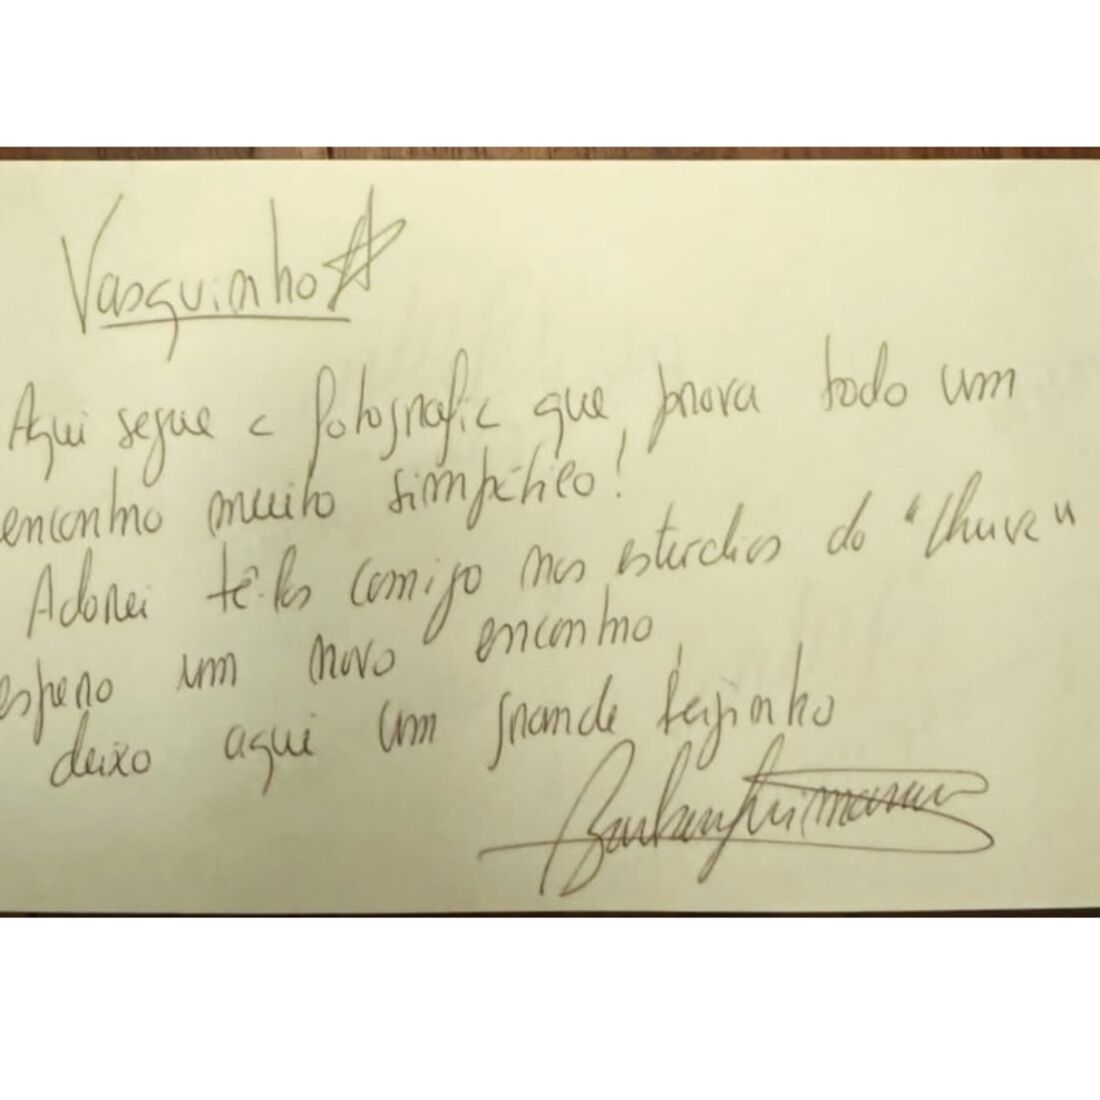 Vasquinho
Aqui segue a fotografia que prova todo um
encontro muito simpático!
Adorei tê-los comigo nos estudios do "Chuva"
espero um novo encontro,
deixo aqui um grande beijinho
Barbara Guimarães